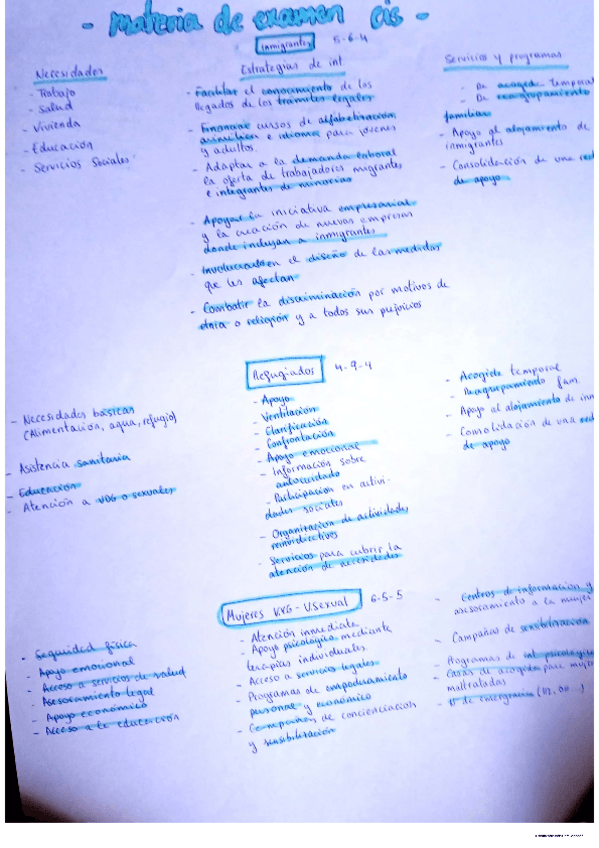 - materia de examen cis -
Inmigrantes 5-6-4
Necesidades
- Trabajo
- Salud
- Vivienda
- Educación
- Servicios Sociales
Estrategias de int
- Facilitar el conocimiento de los
llegados de los trámites legales
- Financiar cursos de alfabetización,
e idiomas para jóvenes
y adultos.
- Adaptar a la demanda laboral
la oferta de trabajadores migrantes
e integrantes de minorías
- Apoyar la iniciativa empresarial
y la creación de nuevas empresas
donde incluyan a inmigrantes
- Involucrarlos en el diseño de las medidas
que les afectan
- Combatir la discriminación por motivos de
etnia o religión y a todos sus prejuicios
Servicios y programas
- De acogida temporal
- De reagrupamiento
familiar
- Apoyo al alojamiento de
inmigrantes
- Consolidación de una red
de apoyo
Refugiados 4-9-4
- Necesidades básicas
(Alimentación, agua, refugio)
- Asistencia sanitaria
- Educación
- Atención a VDG o sexuales
- Apoyo
- Ventilación
- Clarificación
- Confrontación
- Apoyo emocional
- Información sobre
autocuidado
- Participación en activi-
dades sociales
- Organización de actividades
reivindicativas
- Servicios para cubrir la
atención de necesidades
- Acogida temporal
- Reagrupamiento fam.
- Apoyo al alojamiento de inm
- Consolidación de una red
de apoyo
Mujeres VXG - V.Sexual 6-5-5
- Seguridad física
- Apoyo emocional
- Acceso a servicios de salud
- Asesoramiento legal
- Apoyo económico
- Acceso a la educación
- Atención inmediata
- Apoyo psicológico mediante
terapias individuales.
- Acceso a servicios legales
- Programas de empoderamiento
personal y económico
- Campañas de concienciación
y sensibilización
- Centros de información y
asesoramiento a la mujer
- Campañas de sensibilización
- Programas de int psicológica
- Casas de acogida para mujeres
maltratadas
- Nº de emergencia (112, 011...)